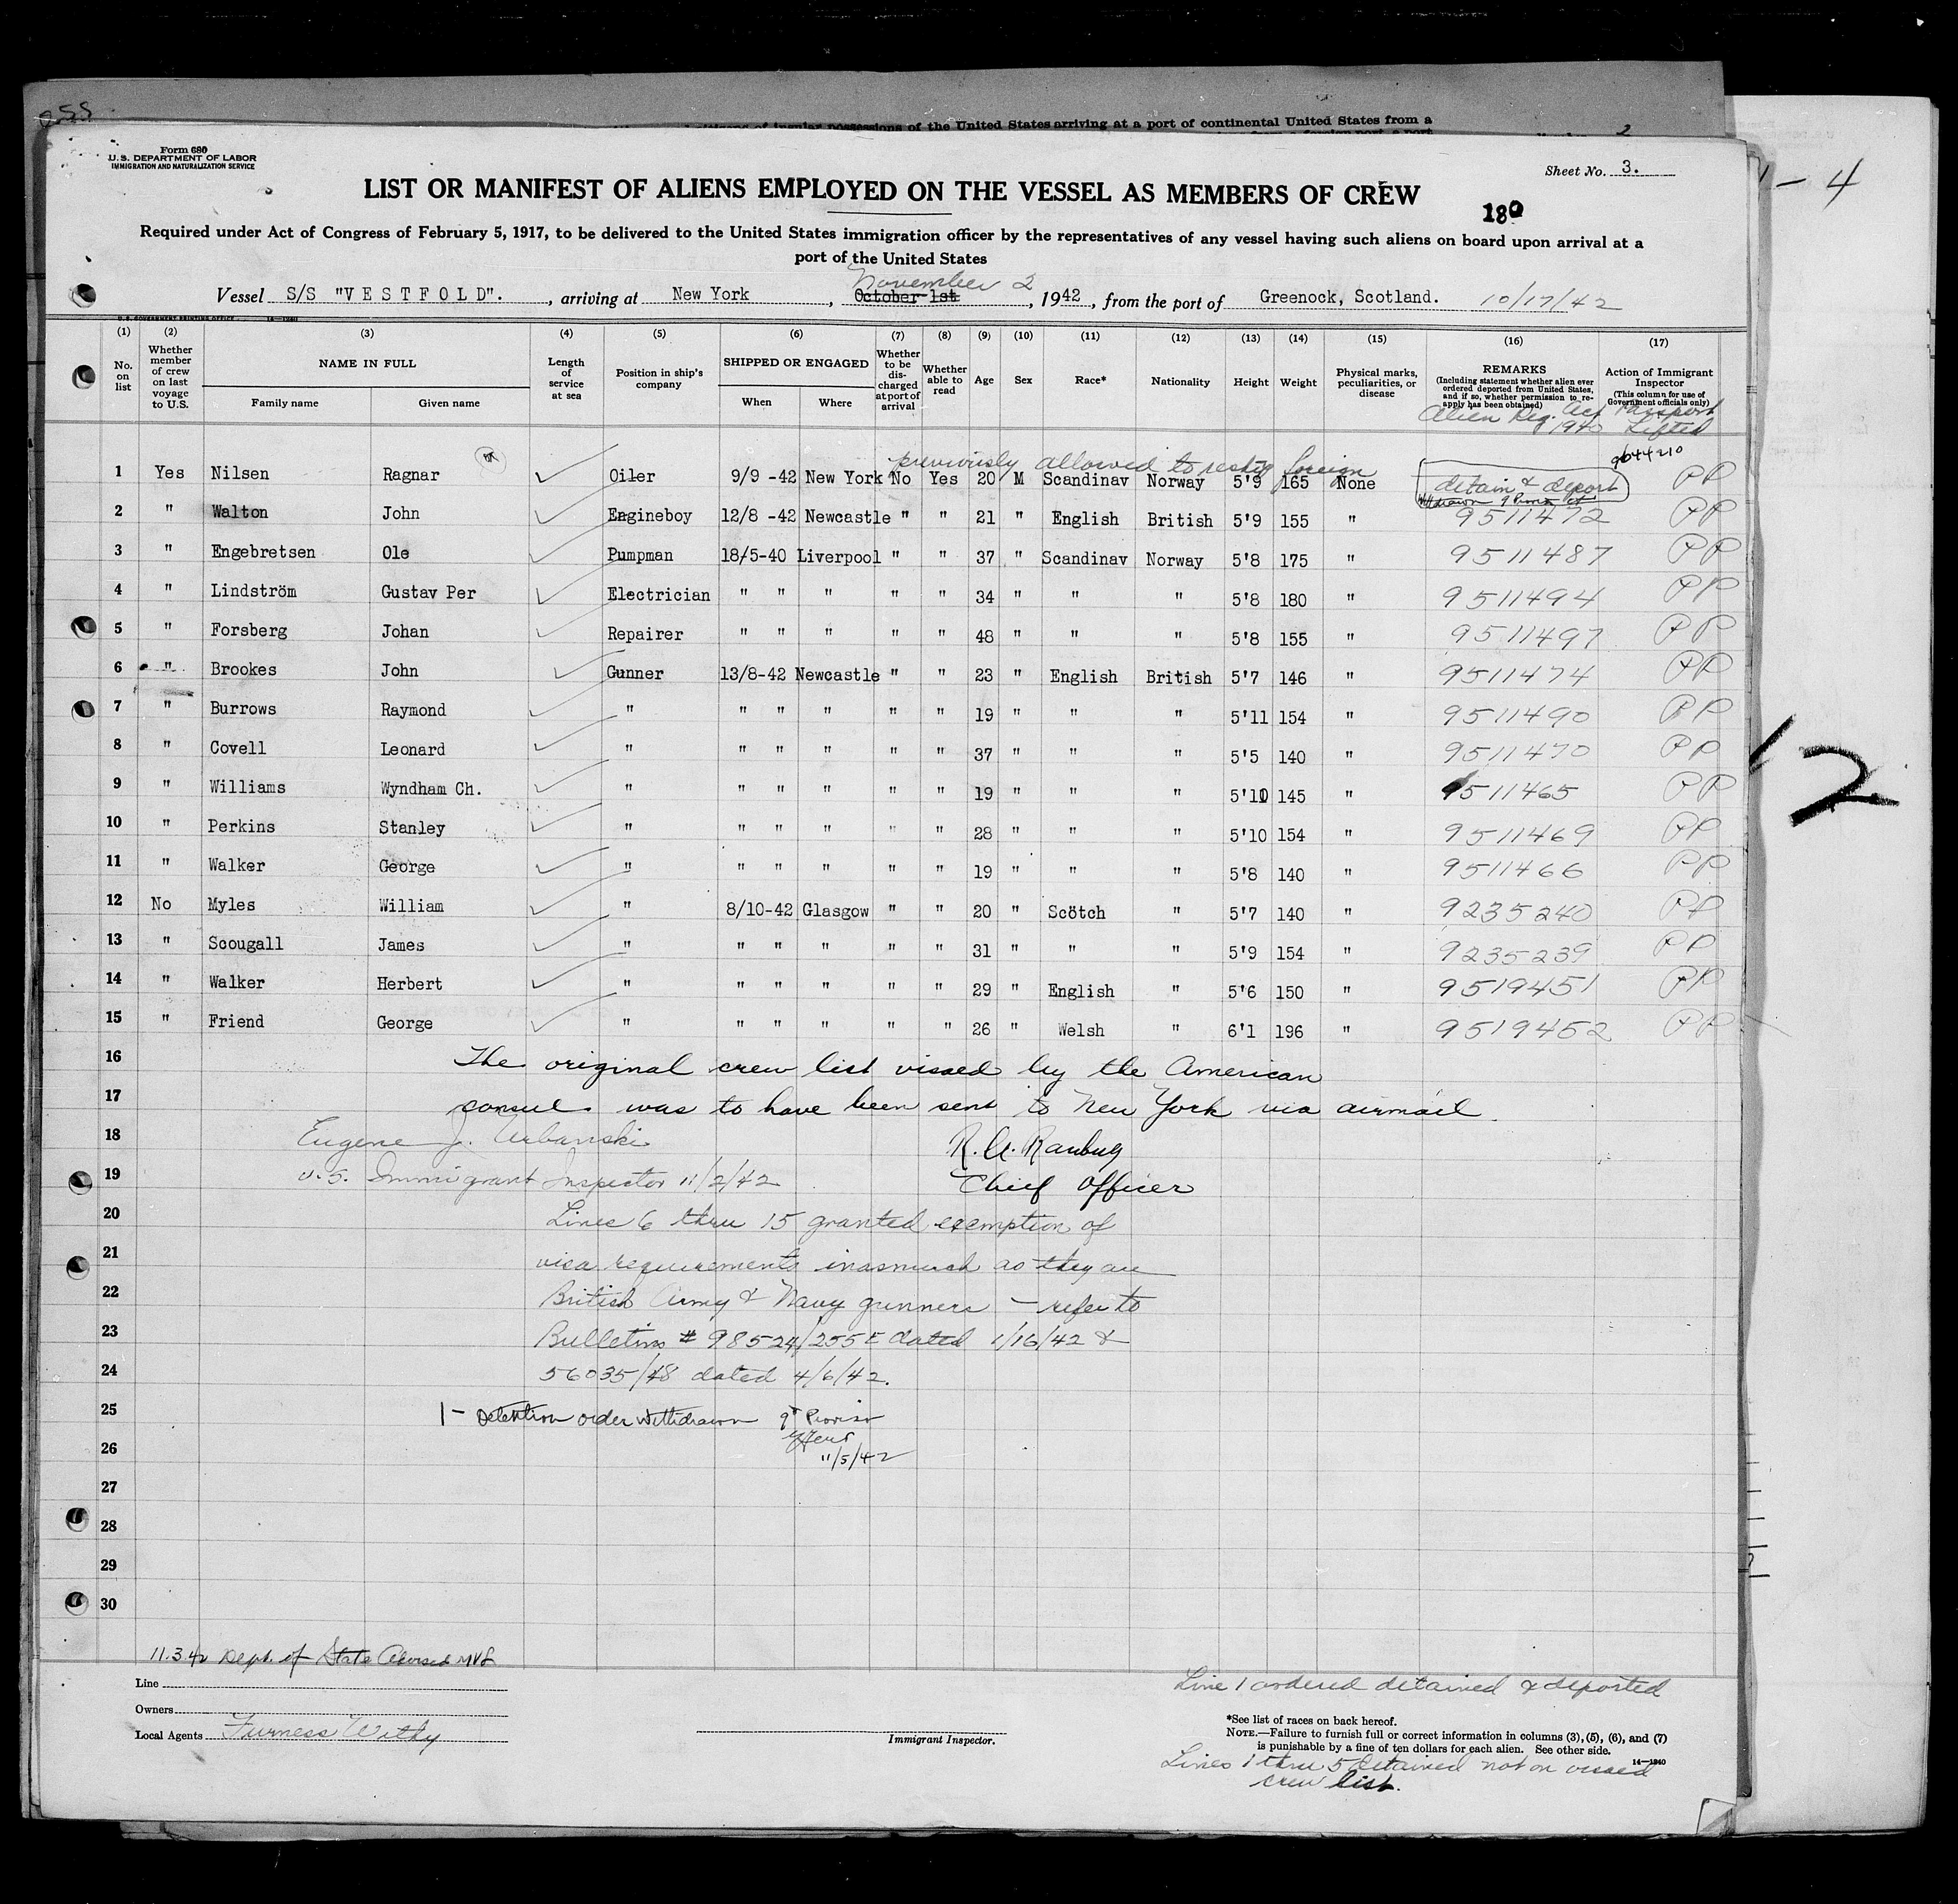 ess
citizens of insular possessions of the United States arriving at a port of continental United States from a
2
Form 680
U.S. DEPARTMENT OF LABOR
IMMIGRATION AND NATURALIZATION SERVICE
Sheet No. 3.
- 4
LIST OR MANIFEST OF ALIENS EMPLOYED ON THE VESSEL AS MEMBERS OF CREW
180
Required under Act of Congress of February 5, 1917, to be delivered to the United States immigration officer by the representatives of any vessel having such aliens on board upon arrival at a
port of the United States
November 2
Vessel S/S "VESTFOLD". , arriving at New York , October 1st , 1942 , from the port of Greenock, Scotland. 10/17/42
(1) (2) (3) (4) (5) (6) (7) (8) (9) (10) (11) (12) (13) (14) (15) (16) (17)
No. on list
Whether member of crew on last voyage to U.S.
NAME IN FULL
Family name
Given name
Length of service at sea
Position in ship's company
SHIPPED OR ENGAGED
When
Where
Whether to be discharged at port of arrival
Whether able to read
Age
Sex
Race*
Nationality
Height
Weight
Physical marks, peculiarities, or disease
REMARKS
(Including statement whether alien ever ordered deported from United States, and if so, whether permission to re-apply has been obtained)
Action of Immigrant Inspector
(This column for use of Government officials only)
Alien Reg. Act 1940
Passport Lifted
previously allowed to reship foreign
9644210
1 Yes Nilsen Ragnar Oiler 9/9 -42 New York No Yes 20 M Scandinav Norway 5'9 165 None detain & deport PP
Withdrawn 9 Proviso
2 " Walton John Engineboy 12/8 -42 Newcastle " " 21 " English British 5'9 155 " 9511472 PP
3 " Engebretsen Ole Pumpman 18/5-40 Liverpool " " 37 " Scandinav Norway 5'8 175 " 9511487 PP
4 " Lindström Gustav Per Electrician " " " " " 34 " " " 5'8 180 " 9511494 PP
5 " Forsberg Johan Repairer " " " " " 48 " " " 5'8 155 " 9511497 PP
6 " Brookes John Gunner 13/8-42 Newcastle " " 23 " English British 5'7 146 " 9511474 PP
7 " Burrows Raymond " " " " " " 19 " " " 5'11 154 " 9511490 PP
8 " Covell Leonard " " " " " " 37 " " " 5'5 140 " 9511470 PP
9 " Williams Wyndham Ch. " " " " " " 19 " " " 5'10 145 " 9511465 PP
10 " Perkins Stanley " " " " " " 28 " " " 5'10 154 " 9511469 PP
11 " Walker George " " " " " " 19 " " " 5'8 140 " 9511466 PP
12 No Myles William " 8/10-42 Glasgow " " 20 " Scötch " 5'7 140 " 9235240 PP
13 " Scougall James " " " " " " 31 " " " 5'9 154 " 9235239 PP
14 " Walker Herbert " " " " " " 29 " English " 5'6 150 " 9519451 PP
15 " Friend George " " " " " " 26 " Welsh " 6'1 196 " 9519452 PP
12
16 The original crew list visaed by the American
17 consul was to have been sent to New York via airmail.
18 Eugene J. Urbanski
R.A. Ranbug
19 U.S. Immigrant Inspector 11/2/42
Chief Officer
20 Lines 6 thru 15 granted exemption of
21 visa requirements inasmuch as they are
22 British Army & Navy gunners - refer to
23 Bulletins # 98524/255E dated 1/16/42 &
24 56035/48 dated 4/6/42.
25 1 - Detention order withdrawn 9th Proviso
26 11/5/42
27
28
29
30
11.3.42 Dept. of State Advised MVL
Line
Owners
Local Agents Furness Withy
Immigrant Inspector.
Line 1 ordered detained & deported
*See list of races on back hereof.
NOTE.—Failure to furnish full or correct information in columns (3), (5), (6), and (7)
is punishable by a fine of ten dollars for each alien. See other side.
14—1940
Lines 1 thru 5 detained not on visaed
crew list.